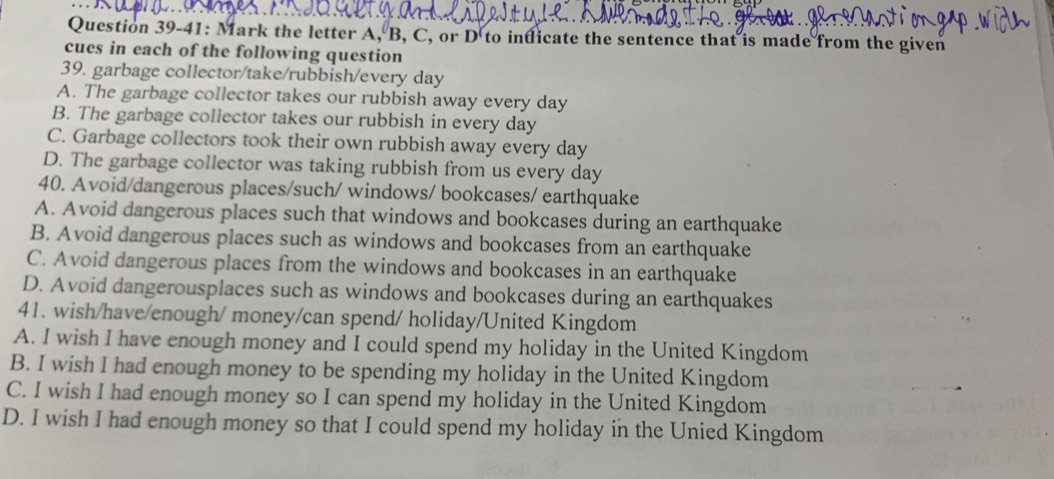 changes in society and lifestyle have made the generation gap wid
Question 39-41: Mark the letter A, B, C, or D to indicate the sentence that is made from the given
cues in each of the following question
39. garbage collector/take/rubbish/every day
A. The garbage collector takes our rubbish away every day
B. The garbage collector takes our rubbish in every day
C. Garbage collectors took their own rubbish away every day
D. The garbage collector was taking rubbish from us every day
40. Avoid/dangerous places/such/ windows/ bookcases/ earthquake
A. Avoid dangerous places such that windows and bookcases during an earthquake
B. Avoid dangerous places such as windows and bookcases from an earthquake
C. Avoid dangerous places from the windows and bookcases in an earthquake
D. Avoid dangerousplaces such as windows and bookcases during an earthquakes
41. wish/have/enough/ money/can spend/ holiday/United Kingdom
A. I wish I have enough money and I could spend my holiday in the United Kingdom
B. I wish I had enough money to be spending my holiday in the United Kingdom
C. I wish I had enough money so I can spend my holiday in the United Kingdom
D. I wish I had enough money so that I could spend my holiday in the Unied Kingdom